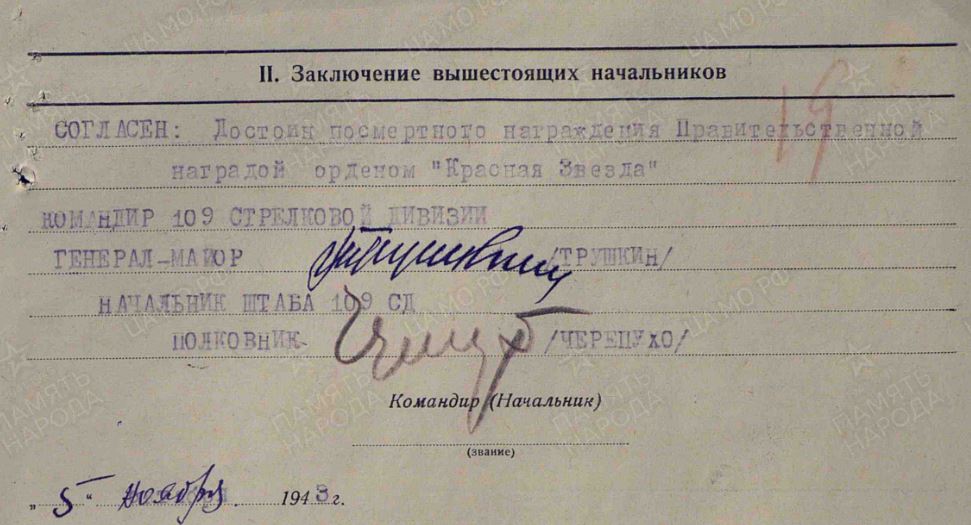 II. Заключение вышестоящих начальников
19
СОГЛАСЕН: Достоин посмертного награждения Правительственной
наградой орденом "Красная Звезда"
КОМАНДИР 109 СТРЕЛКОВОЙ ДИВИЗИИ
ГЕНЕРАЛ-МАЙОР /ТРУШКИН/
НАЧАЛЬНИК ШТАБА 109 СД
ПОЛКОВНИК- /ЧЕРЕПУХО/
Командир (Начальник)
(звание)
„5“ Ноября 1943 г.
ПАМЯТЬ НАРОДА
ЦА МО РФ